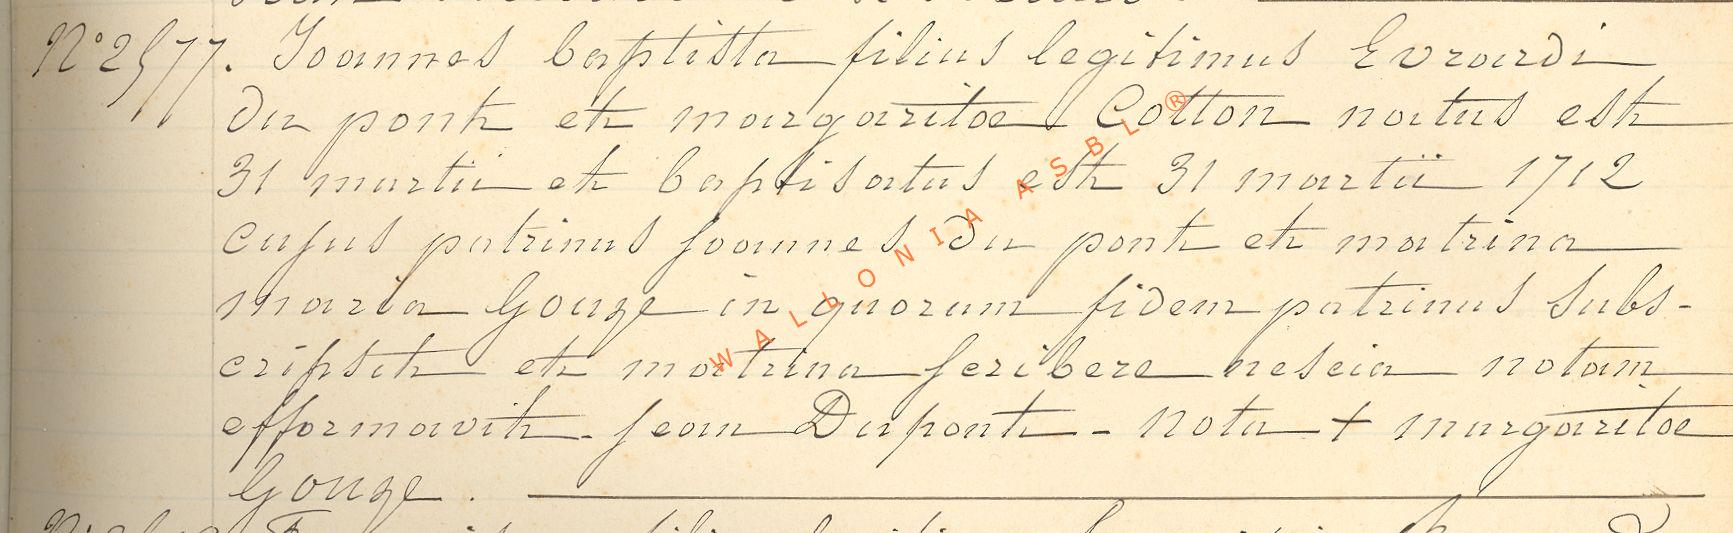 N° 2577. Joannes baptista filius legitimus Evrardi
du pont et margaritae Cotton natus est
31 martii et baptisatus est 31 martii 1712
cujus patrinus joannes du pont et matrina
maria Gouze in quorum fidem patrinus subs-
cripsit et matrina scribere nescia notam
efformavit - jean Dupont - Nota + margaritae
Gouze.
WALLONIA ASBL ®